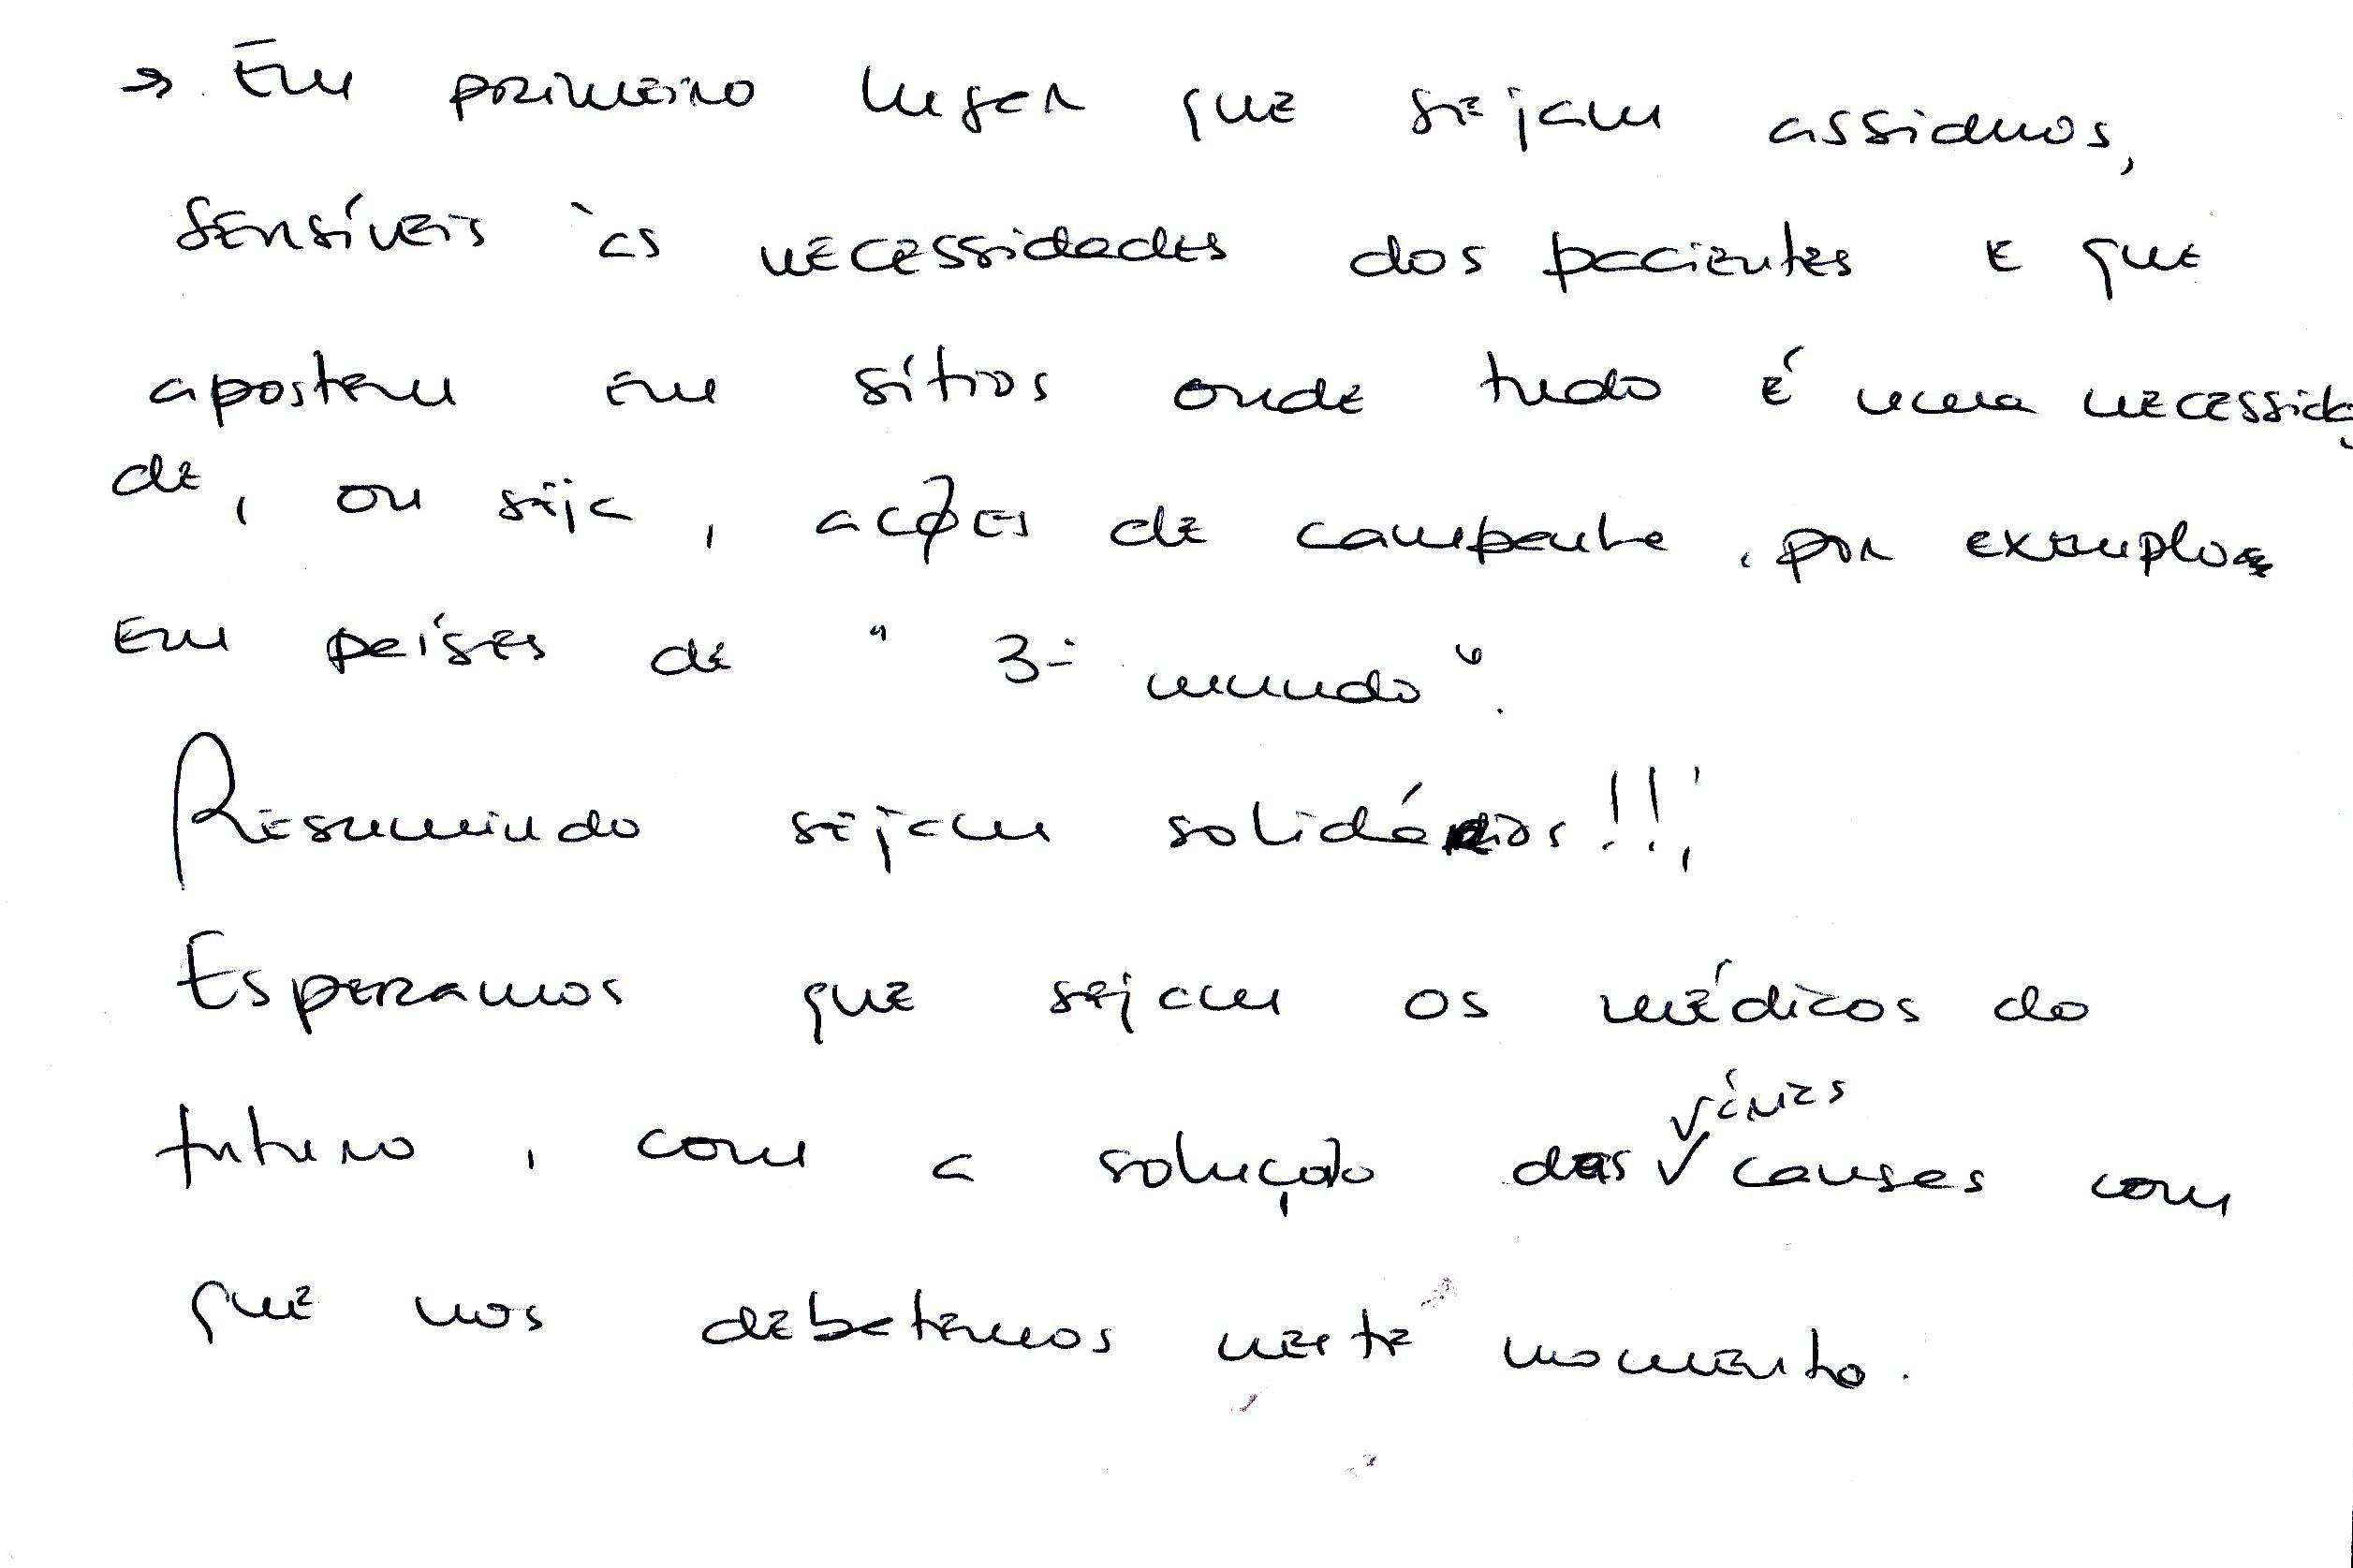 → Em primeiro lugar que sejam assiduos,
sensíveis às necessidades dos pacientes e que
apostem em sítios onde tudo é uma necessida
de, ou seja, acções de campanha, por exemplo
em países de "3º mundo".
Resumindo sejam solidários!!!
Esperamos que sejam os médicos do
futuro, com a solução das várias causas com
que nos debatemos neste momento.